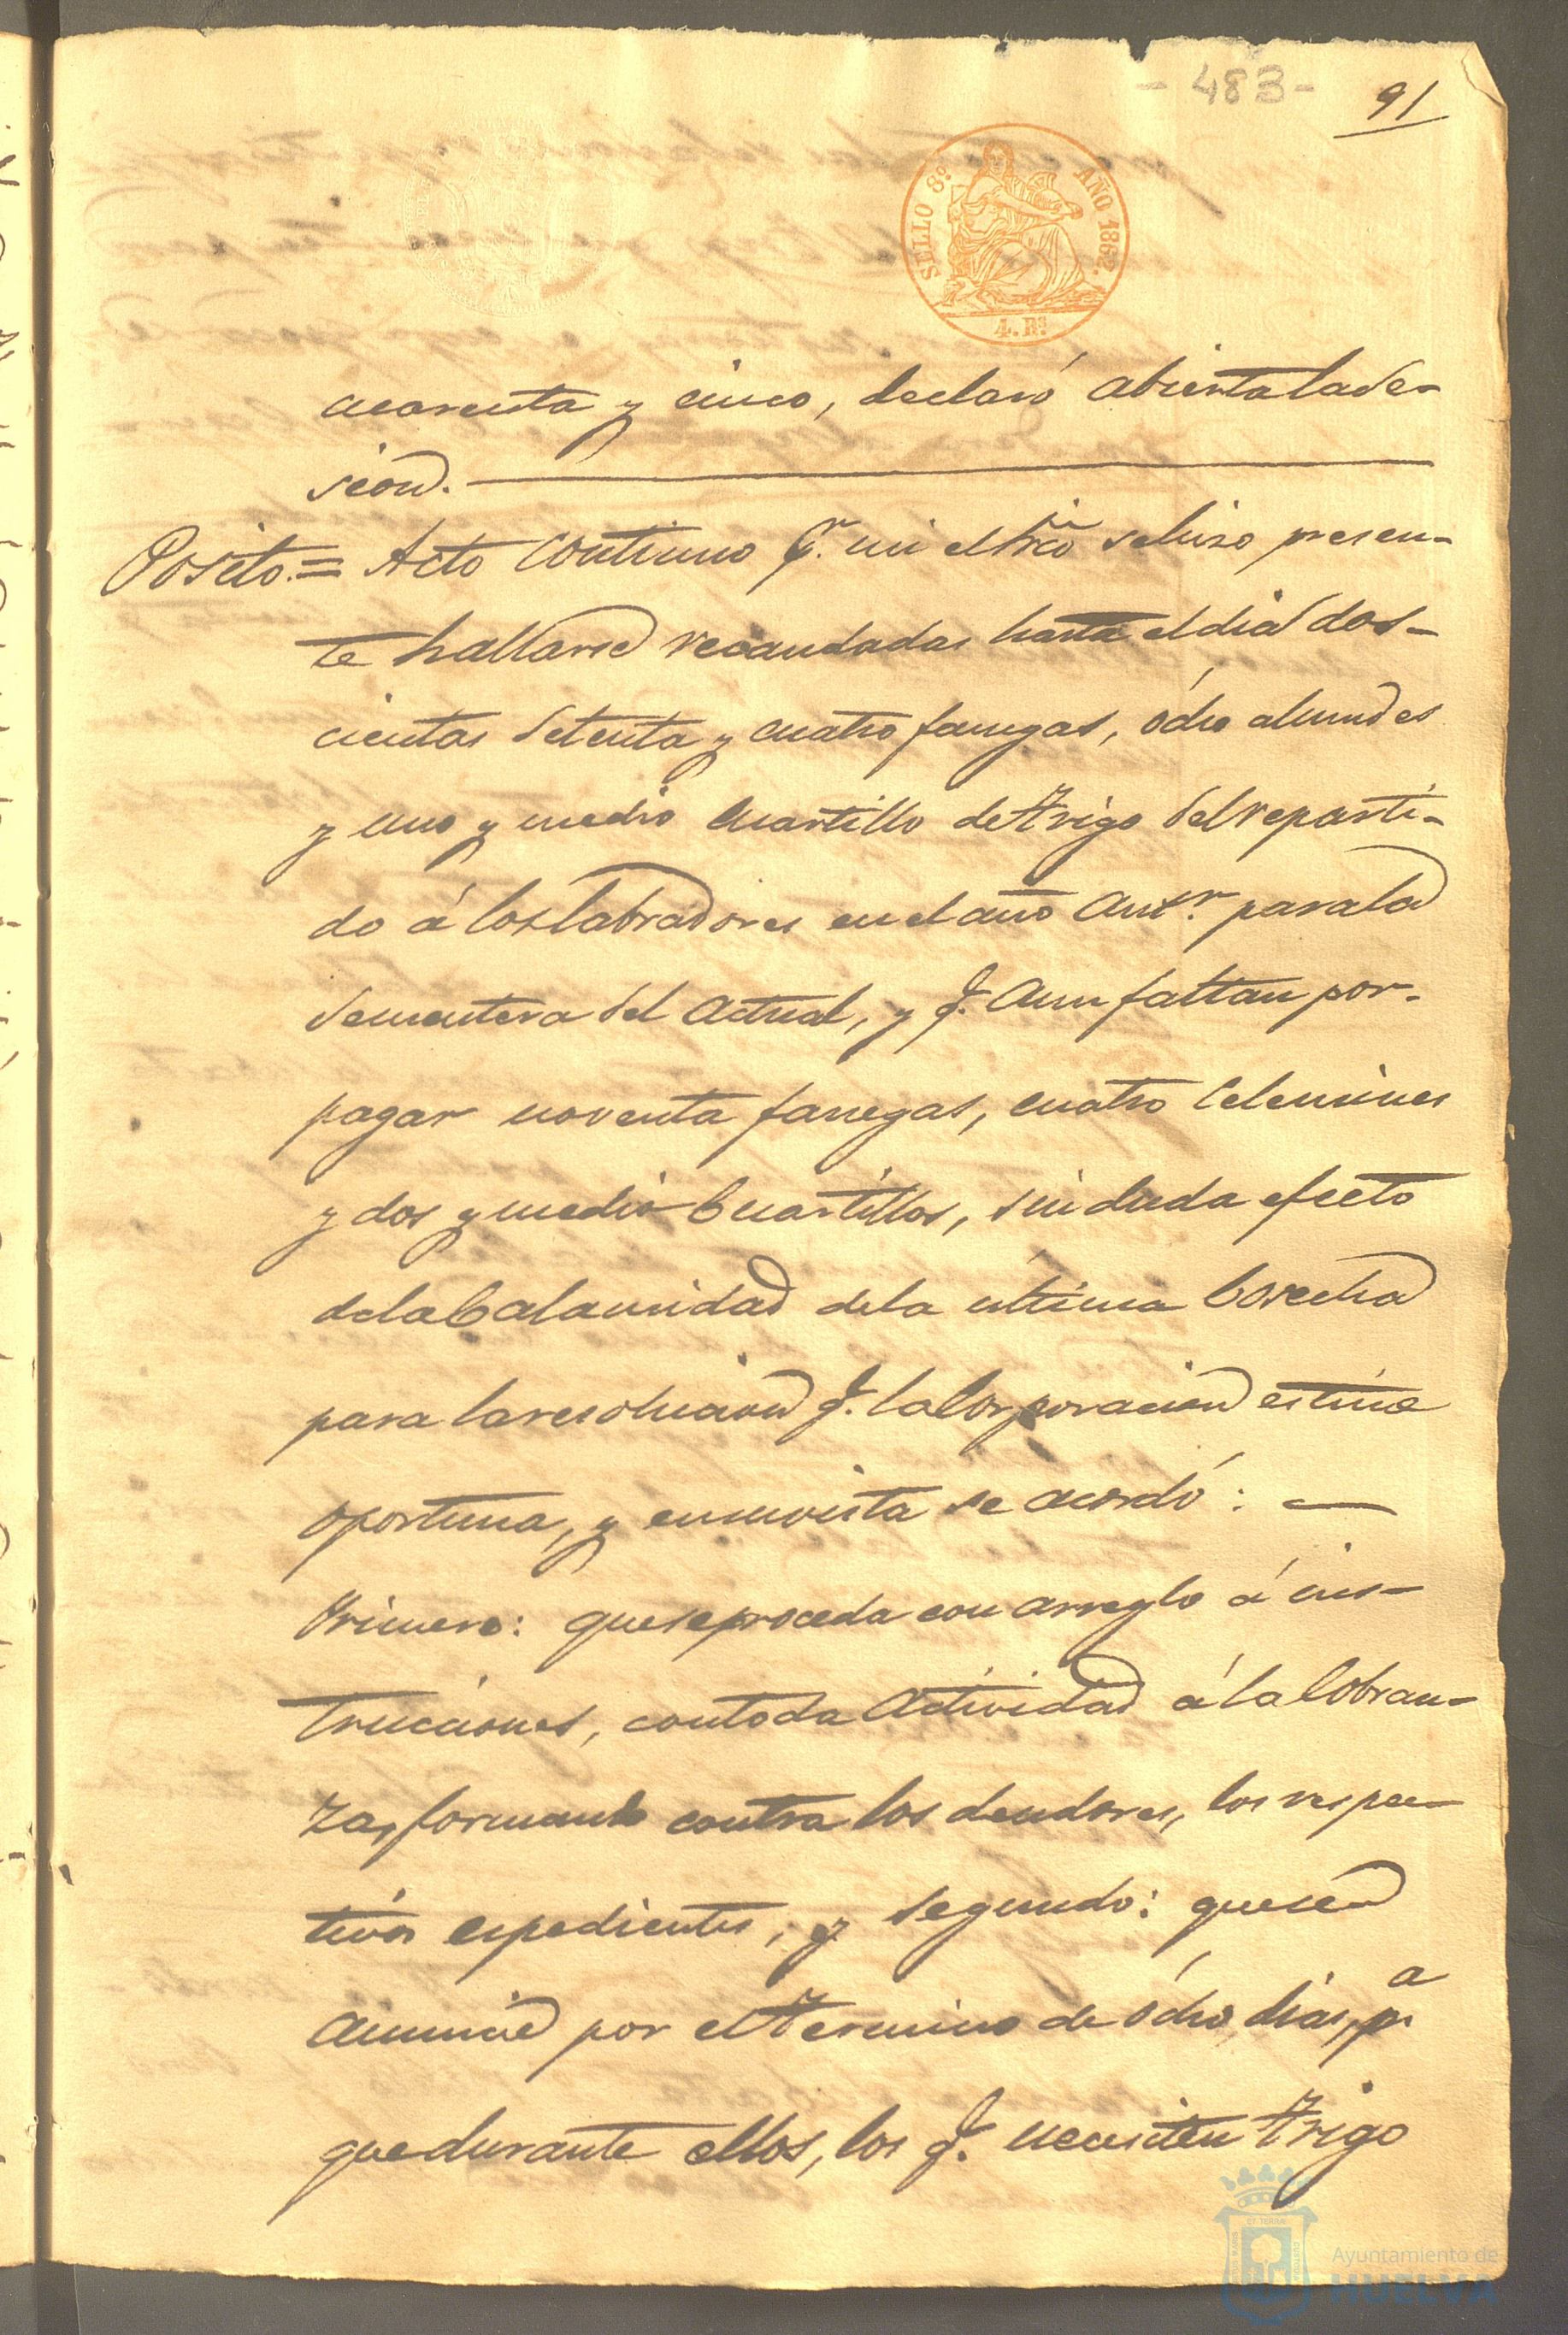 - 483 -
91
SELLO 8º AÑO 1862.
4. Rs
cuarenta y cinco, declaró abierta la se-
sion.
Posito = Acto continuo pr. mi el Srio se hizo presen-
te hallarse recaudadas hasta el dia dos-
cientas setenta y cuatro fanegas, ócho almudes
y uno y medio cuartillo de trigo del reparti-
do á los labradores en el año antr. para la
sementera del actual, y q. aun faltan por
pagar noventa fanegas, cuatro celemines
y dos y medio cuartillos, sin duda efecto
de la calamidad de la última cosecha
para la resolucion q. la Corporacion estime
oportuna, y en su vista se acordó:
Primero: que se proceda con arreglo á ins-
trucciones, con toda actividad á la cobran-
za, formando contra los deudores, los respec-
tivos espedientes; y segundo: que se
anuncie por el termino de ócho dias, pa
que durante ellos, los q. necesiten trigo
Ayuntamiento de
HUELVA